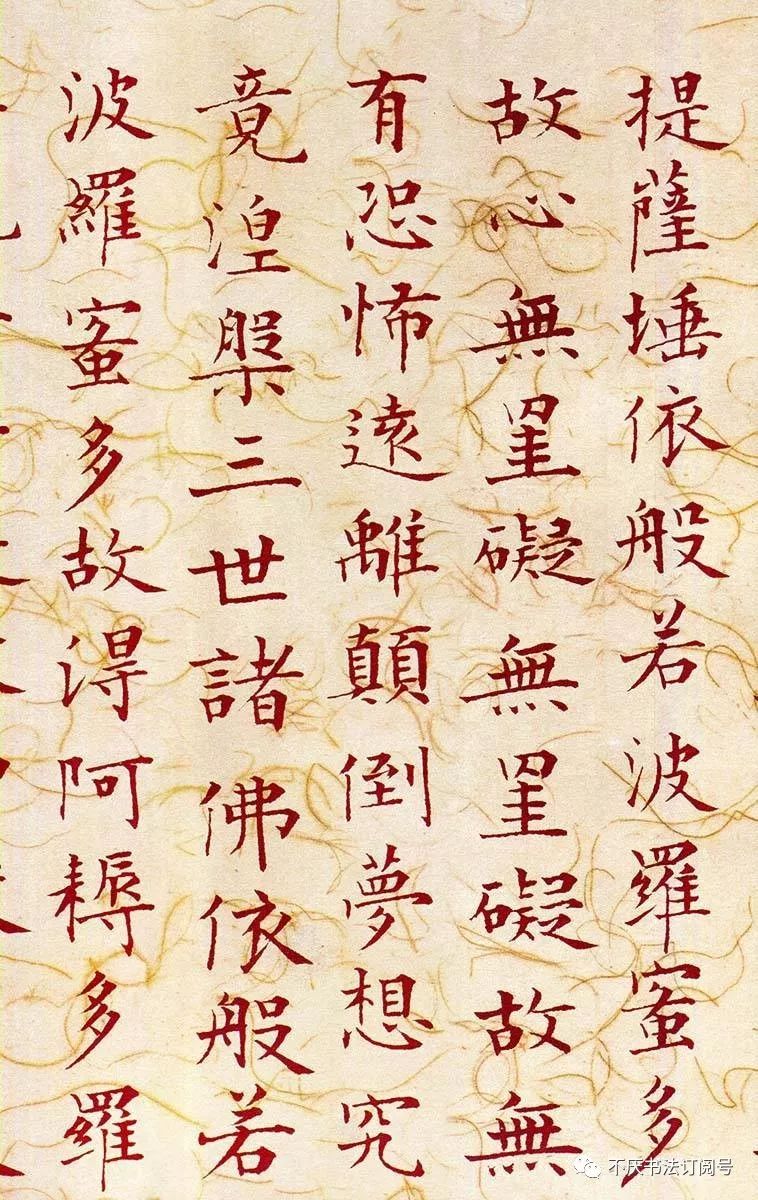 提薩埵依般若波羅蜜多
故心無罣礙無罣礙故無
有恐怖遠離顛倒夢想究
竟涅槃三世諸佛依般若
波羅蜜多故得阿耨多羅
不厌书法订阅号